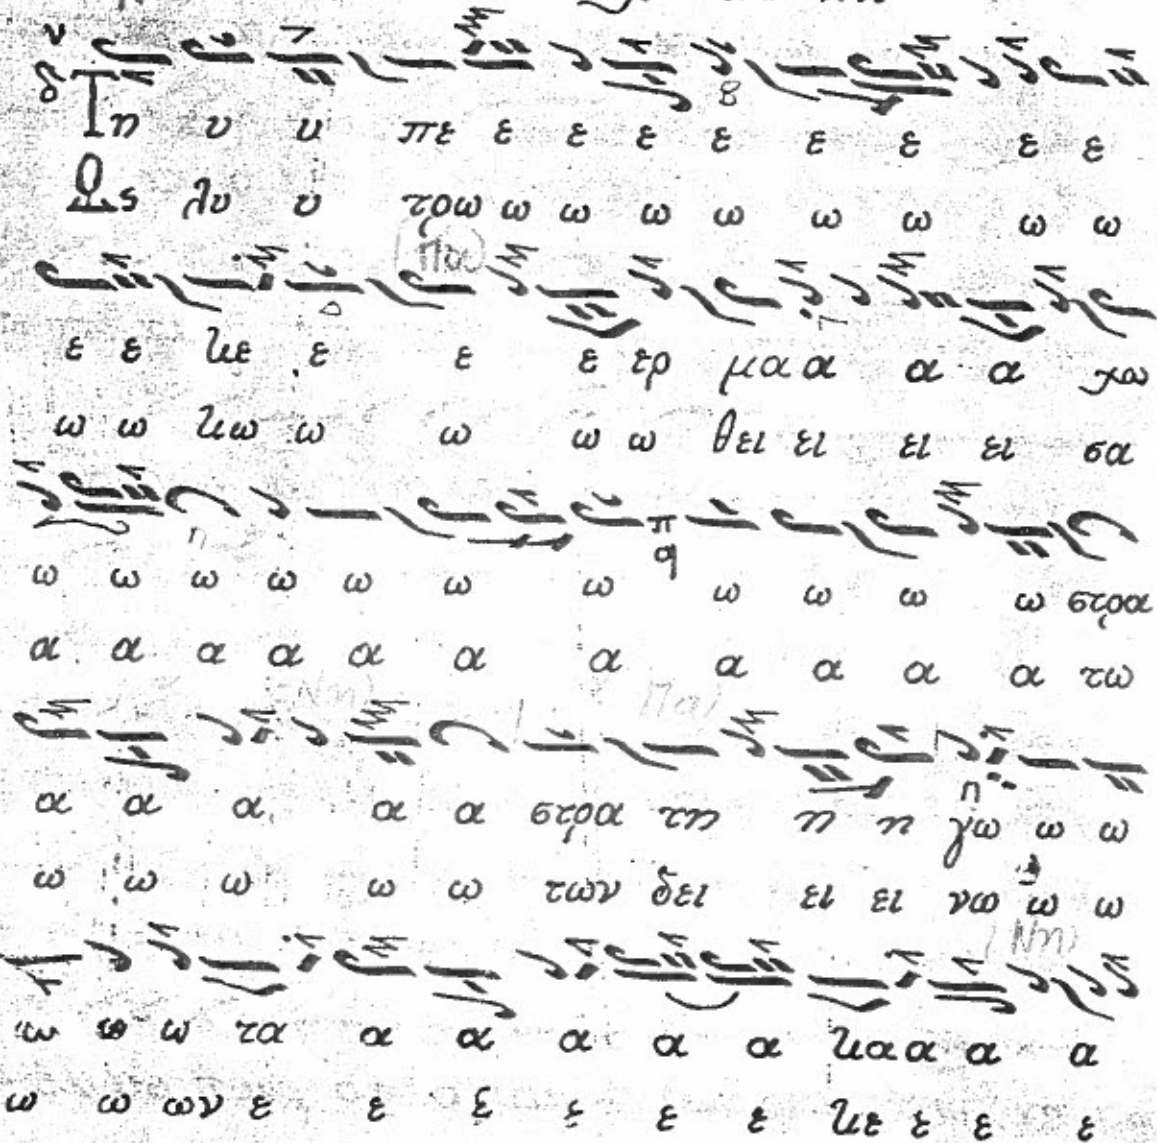 Τη υ υ πε ε ε ε ε ε ε ε ε
Ως λυ υ τρω ω ω ω ω ω ω ω ω
(Πα)
ε ε κε ε ε ε ερ μα α α α χω
ω ω κω ω ω ω ω θει ει ει ει σα
π
q
ω ω ω ω ω ω ω ω ω ω ω στρα
α α α α α α α α α α α τω
(Νη) Πα)
α α α α α στρα τη η η γω ω ω
ω ω ω ω ω των δει ει ει νω ω ω
(Νη)
ω ω ω τα α α α α α κα α α α
ω ω ων ε ε ε ε ε ε κε ε ε ε